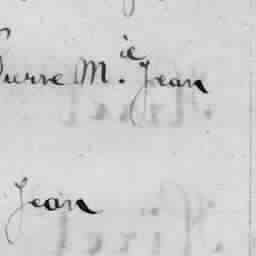 Pierre M.ie Jean
Jean